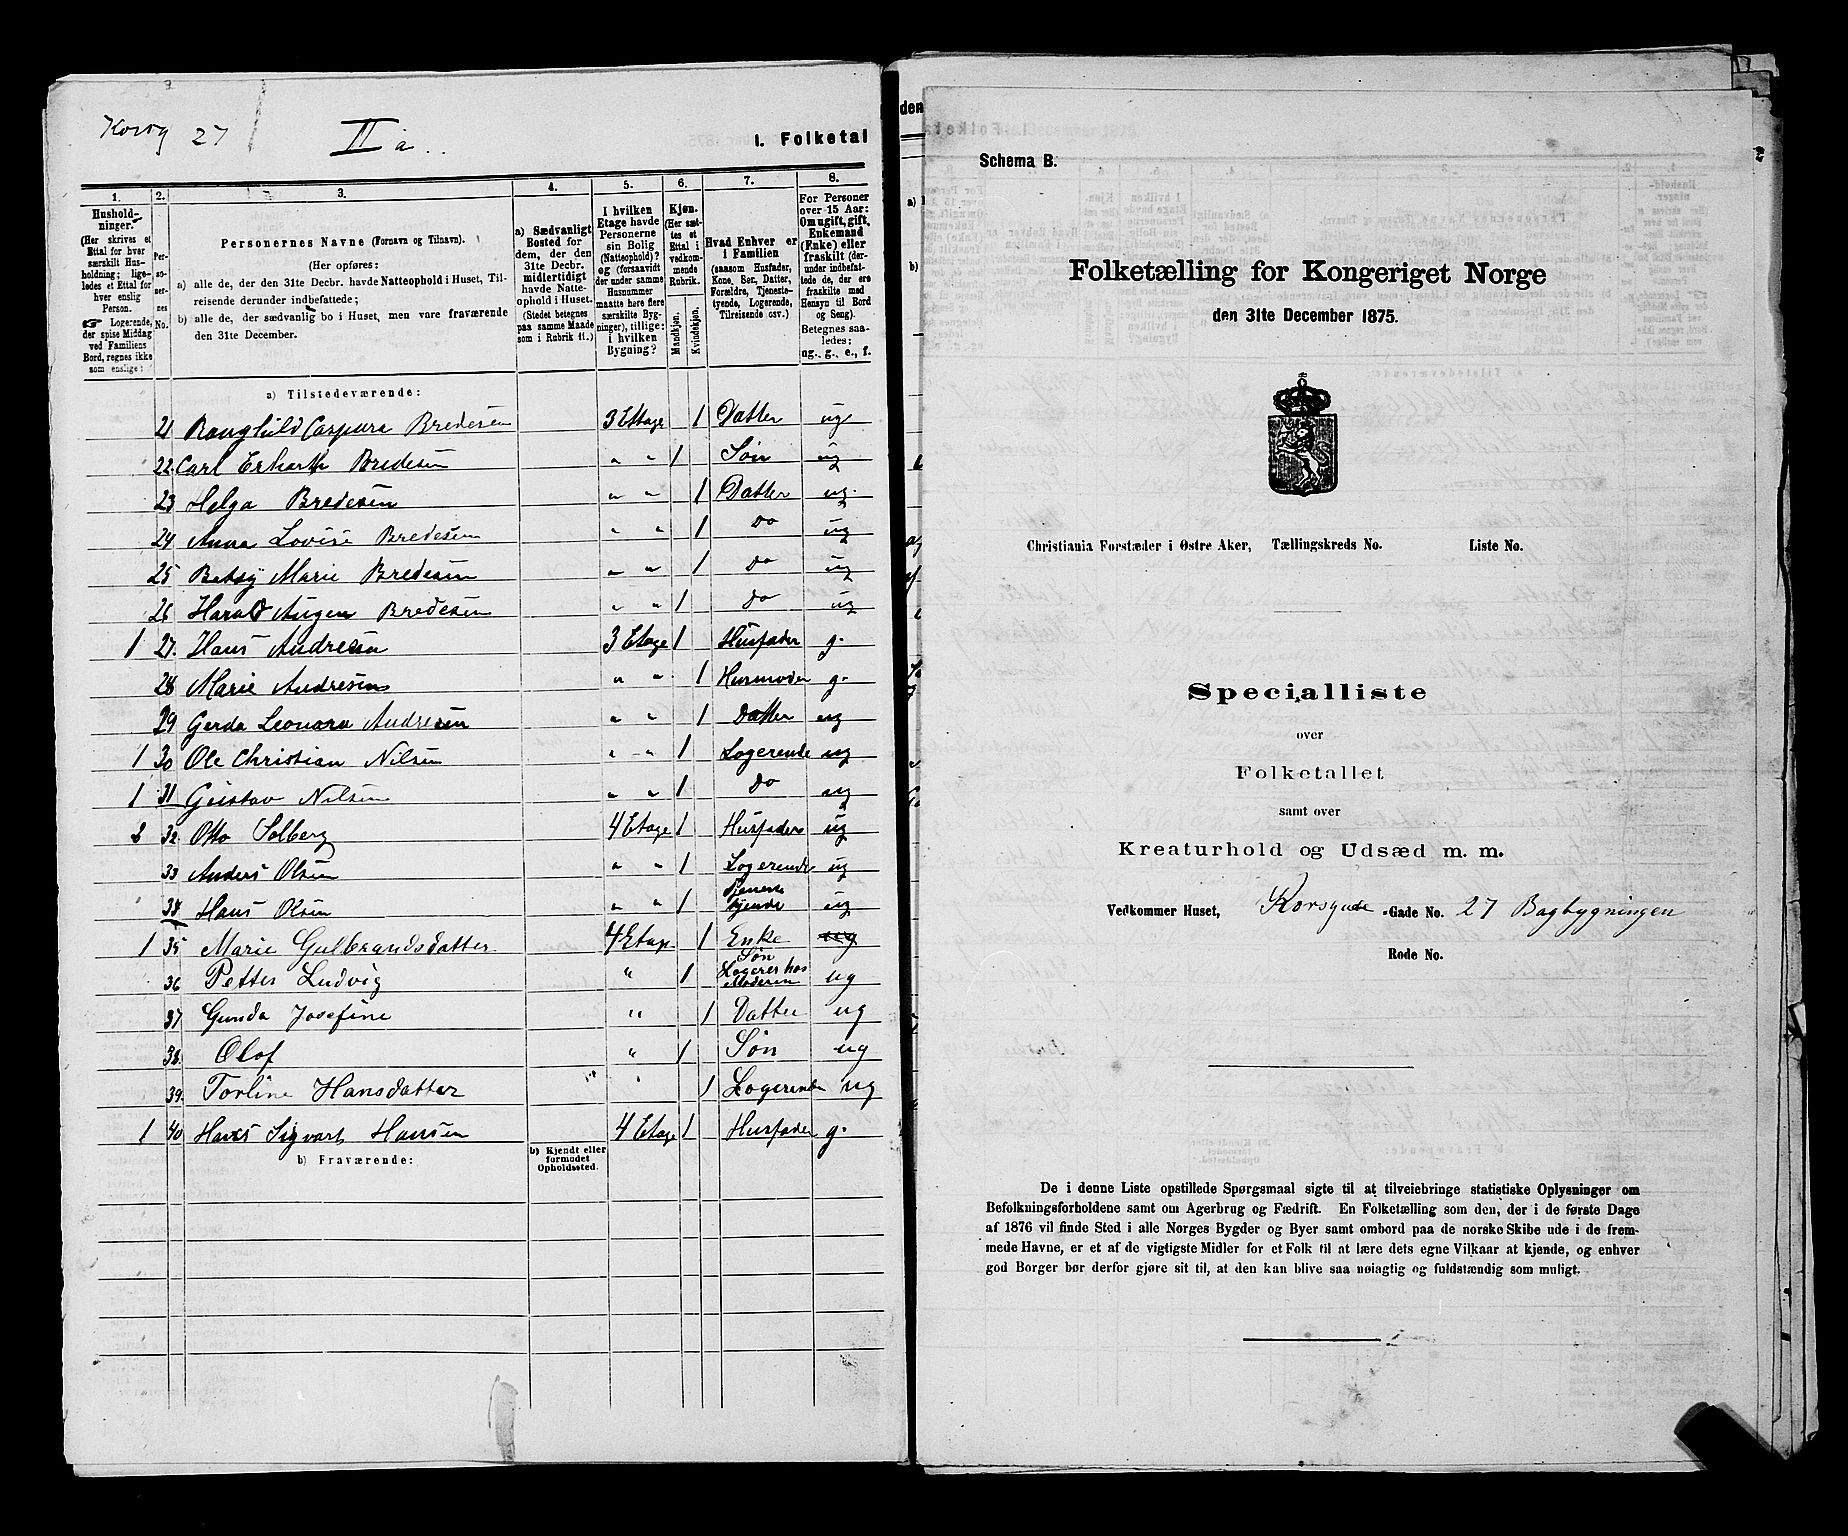 Korsg 27
II a.
1. Folketal
1.
2.
3.
4.
5.
6.
7.
8.
Hushold-
ninger.
(Her skrives et
Ettal for hver
særskilt Hus-
holdning; lige-
ledes et Ettal for
hver enslig
Person.
☞ Logerende,
der spise Middag
ved Familiens
Bord, regnes ikke
som enslige)
Per-
so-
ner-
nes
No.
Personernes Navne (Fornavn og Tilnavn).
(Her opføres:
a) alle de, der den 31te Decbr. havde Natteophold i Huset, Til-
reisende derunder indbefattede;
b) alle de, der sædvanlig bo i Huset, men vare fraværende
den 31te December.
a) Sædvanligt
Bosted for
dem, der den
31te Decbr.
midlertidigt
havde Natte-
ophold i Huset.
(Stedet betegnes
paa samme Maade
som i Rubrik 11.)
I hvilken
Etage havde
Personerne
sin Bolig
(Natteophold)?
og (forsaavidt
der under samme
Husnummer
maatte høre flere
særskilte Byg-
ninger), tillige:
i hvilken
Bygning?
Kjøn.
(Her sæt-
tes et
Ettal i
vedkom-
mende
Rubrik.
Mandkjøn.
Kvindekjøn.
Hvad Enhver er
i Familien
(saasom Husfader,
Kone, Søn, Datter,
Forældre, Tjeneste-
tyende, Logerende,
Tilreisende osv.)
For Personer
over 15 Aar:
Om ugift, gift,
Enkemand
(Enke) eller
fraskilt (der-
under indbefat-
tede de, der ere
fraskilte med
Hensyn til Bord
og Seng).
Betegnes saa-
ledes:
ug., g., e., f.
a) Tilstedeværende:
21 Ranghild Caspara Bredesen 3 Ettage 1 Datter ug
22. Carl Erharth Bredesen „ „ 1 Søn ug
23 Helga Bredesen „ „ 1 Datter ug.
24 Anna Lovise Bredesen „ „ 1 Do ug
25 Betsy Marie Bredesen „ „ 1 Do ug
26 Harald Augen Bredesen „ „ 1 Do ug
1 27. Hans Andresen 3 Etage 1 Husfader g.
28 Marie Andresen „ „ 1 Husmoder g.
29 Gerda Leonora Andresen „ „ 1 Datter ug
1 30 Ole Christian Nilsen „ „ 1 Logerende ug
1 31 Gustav Nilsen „ „ 1 Do ug
32. Otto Solberg 4 Etage 1 Husfader ug
33 Anders Olsen „ „ 1 Logerende ug
34 Hans Olsen „ „ 1 Tjeneste tyende ug
1 35 Marie Gulbrandsdatter 4 Etage 1 Enke ug
36 Petter Ludvig „ 1 Søn Logerer hos Moderen ug
37 Gunda Josefine „ 1 Datter ug
38. Olof „ 1 Søn ug
39. Torline Hansdatter „ 1 Logerende ug
1 40 Hans Sigvart Hansen 4 Etage 1 Husfader g.
b) Fraværende:
b) Kjendt eller
formodet
Opholdssted.
Schema B.
Folketælling for Kongeriget Norge
den 31te December 1875.
Christiania Forstæder i Østre Aker, Tællingskreds No. Liste No.
Specialliste
over
Folketallet
samt over
Kreaturhold og Udsæd m. m.
Vedkommer Huset, Korsgade -Gade No. 27 Bagbygningen
Rode No.
De i denne Liste opstillede Spørgsmaal sigte til at tilveiebringe statistiske Oplysninger om
Befolkningsforholdene samt om Agerbrug og Fædrift. En Folketælling som den, der i de første Dage
af 1876 vil finde Sted i alle Norges Bygder og Byer samt ombord paa de norske Skibe ude i de frem-
mede Havne, er et af de vigtigste Midler for et Folk til at lære dets egne Vilkaar at kjende, og enhver
god Borger bør derfor gjøre sit til, at den kan blive saa nøiagtig og fuldstændig som muligt.